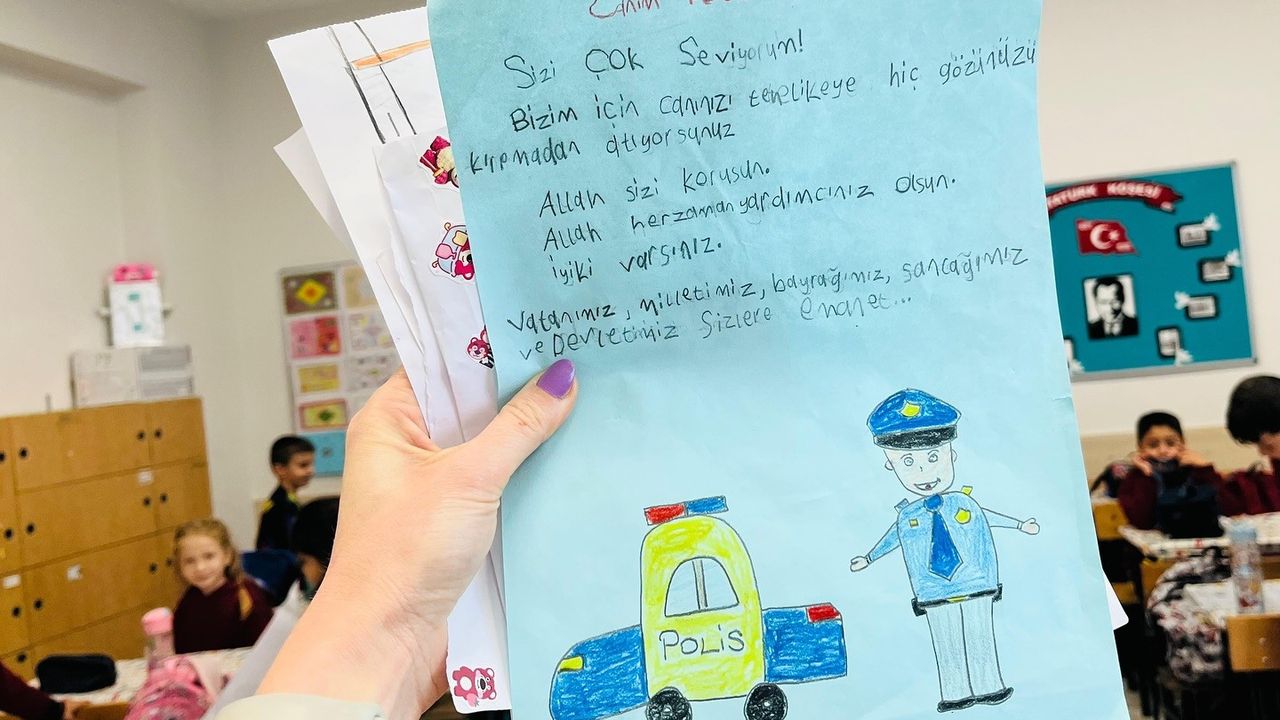 Sizi ÇOK Seviyorum!
Bizim için canınızı tehelikeye hiç gözünüzü
kırpmadan atıyorsunuz
Allah sizi korusun.
Allah herzaman yardımcınız olsun.
iyiki varsınız.
Vatanımız, milletimiz, bayrağımız, sancağımız
ve Devletimiz Sizlere emanet...
POLİS
ATATÜRK KÖŞESİ